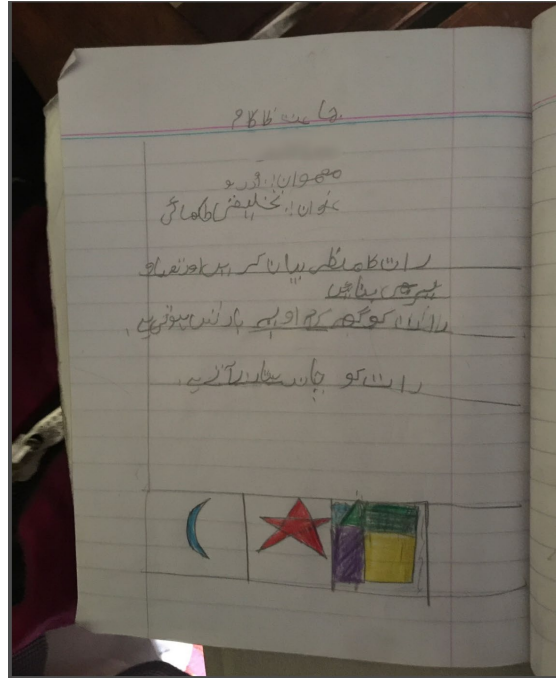 جماعت کا کام
مضمون: اردو
عنوان: تخلیقی لکھائی
رات کا منظر بیان کریں اور تصاویر
بھی بنائیں
رات کو گھر کے اوپر بارش ہوتی ہے۔
رات کو چاند ستارے آتے ہے۔